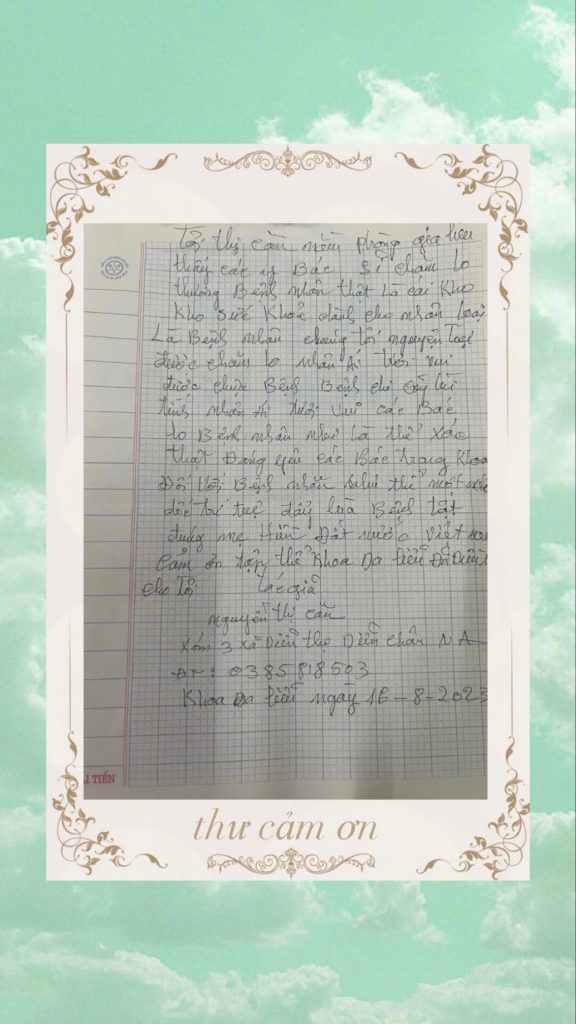 Tôi thị Cần nằm phòng
thấy các y Bác Sĩ chăm lo
thương Bệnh nhân thật Là cái Kho
Kho Sức Khoẻ dành cho nhân Loại
Là Bệnh nhân chúng tôi nguyện
được chăm lo nhân Ái tươi vui
được chữa Bệnh Bệnh
tình nhân Ái tươi vui các Bác
lo Bệnh nhân như Là thể xác
thật Đáng yêu các Bác trong Khoa
Đối Với Bệnh nhân như thể
đẩy lùa Bệnh tật
đúng mẹ Hiền Đất nước Việt
Cảm ơn tập thể Khoa Da liễu Đã
cho Tôi tác giả
nguyễn thị cần
Xóm 3 xã Diễn thọ Diễn Châu N A
ĐT : 0385818503
Khoa Da liễu ngày 16-8-2023
ẢI TIẾN
thư cảm ơn